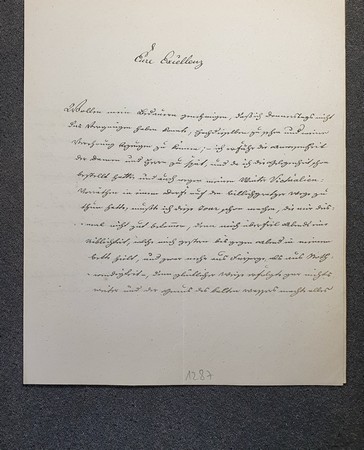 Eure Excellenz
Wollen mein Bedauern genehmigen, daß ich Donnerstags nicht
das Vergnügen haben konnte, Hochdieselben zu sehen und meine
Verehrung bezeigen zu können; ich erfuhr die Anwesenheit
der Damen und Herrn zu spät, und da ich die Gelegenheit schon
bestellt hatte, und auch wegen meiner
in einem Dorfe auf der Wege zu
thun hatte, mußte ich diese Tour schon machen, die mir dies-
mal nicht gut bekam, denn mich überfiel Abends eine
Üblichkeit, welche mich gestern bis gegen Abend in meinem
Bette hielt, und zwar mehr aus Fürsorge als aus Noth-
wendigkeit, denn glücklicher Weise erfolgte gar nichts
weiter und der Genuß des kalten Wassers machte alles
1287